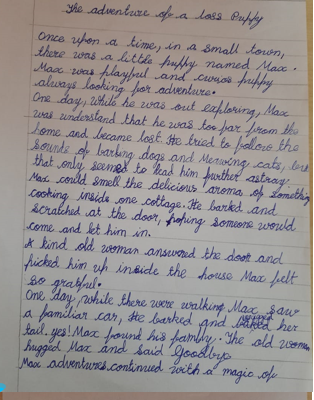 The adventure of a loss Puppy
Once upon a time, in a small town,
there was a little puppy named Max.
Max was playful and puppy
always looking for adventure.
One day, while he was out exploring, Max
was understand that he was too far from the
home and became lost. He tried to follow the
sounds of barking dogs and Mewing cats, but
that only seemed to lead him further astray.
Max could smell the delicious aroma of something
cooking inside one cottage. He barked and
scratched at the door, hoping someone would
come and let him in.
A kind old woman answered the door and
picked him up inside the house Max felt
so grateful.
One day, while there were walking Max saw
a familiar car, He barked and her
tail yes! Max found his family. The old woman
hugged Max and said Goodbye
Max adventures continued with a magic of